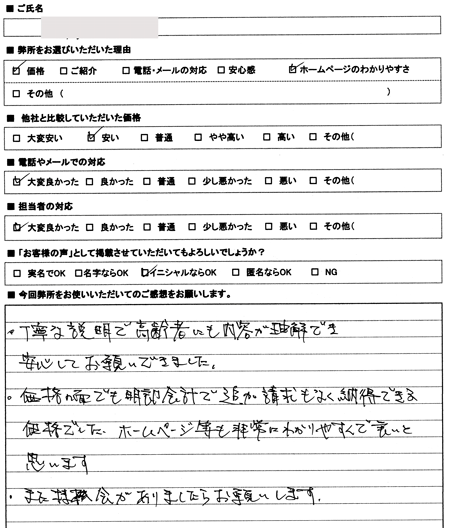 ■ ご氏名
■ 弊所をお選びいただいた理由
☑ 価格 □ ご紹介 □ 電話・メールの対応 □ 安心感 ☑ ホームページのわかりやすさ
□ その他 ( )
■ 他社と比較していただいた価格
□ 大変安い ☑ 安い □ 普通 □ やや高い □ 高い □ その他(
■ 電話やメールでの対応
☑ 大変良かった □ 良かった □ 普通 □ 少し悪かった □ 悪い □ その他(
■ 担当者の対応
☑ 大変良かった □ 良かった □ 普通 □ 少し悪かった □ 悪い □ その他(
■ 「お客様の声」として掲載させていただいてもよろしいでしょうか?
□ 実名でOK □ 名字ならOK ☑ イニシャルならOK □ 匿名ならOK □ NG
■ 今回弊所をお使いいただいてのご感想をお願いします。
・丁寧な説明で高齢者にも内容が理解でき
安心してお願いできました。
・価格面でも明朗会計で追加請求もなく納得できる
価格でした、ホームページ等も非常にわかりやすくて良いと
思います
・また機会がありましたらお願いします.